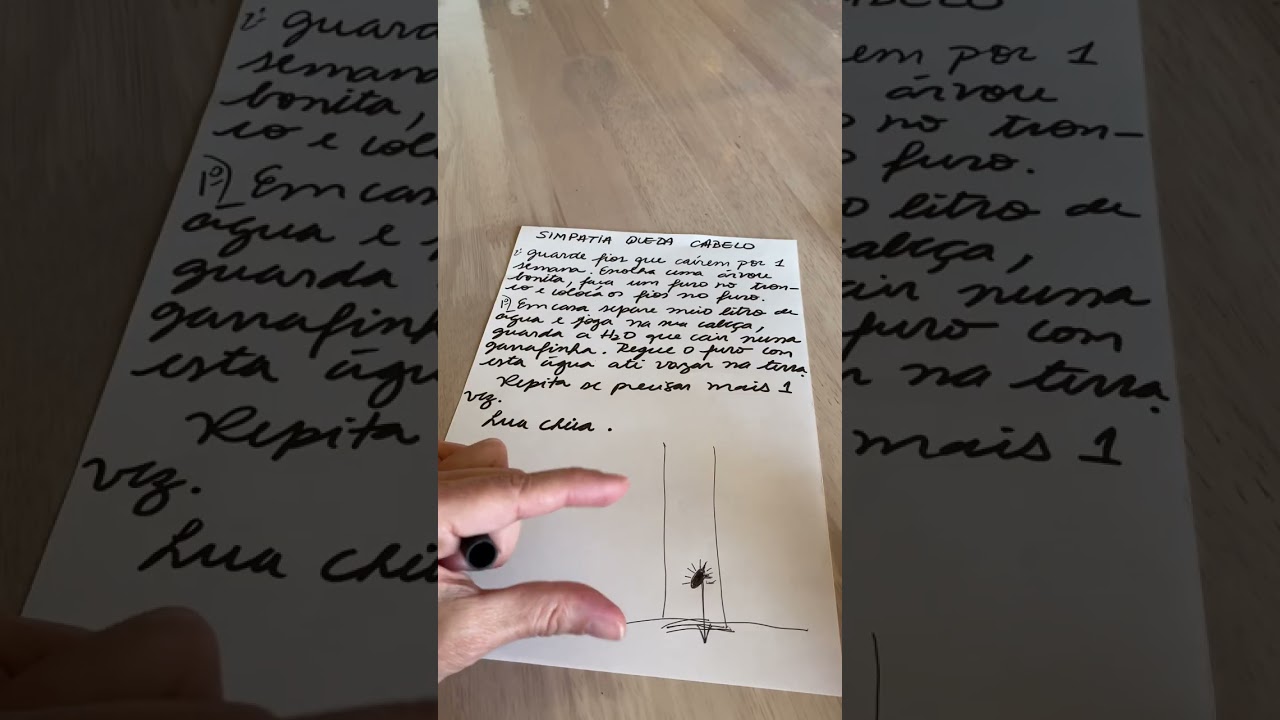 SIMPATIA QUEDA CABELO
guarde fios que caírem por 1
semana. Escolha uma árvore
bonita, faça um furo no tron-
co e coloca os fios no furo.
Em casa separe meio litro de
água e joga na sua cabeça,
guarda a H2O que cair numa
garrafinha. Regue o furo com
esta água até vazar na terra.
Repita se precisar mais 1
vez.
Lua cheia.